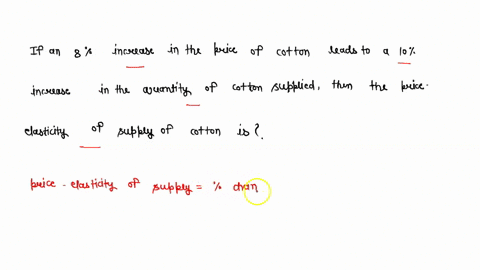 If an 8% increase in the price of cotton leads to a 10%
increase in the quantity of cotton supplied, then the price-
elasticity of supply of cotton is?.
price - elasticity of supply = % chan